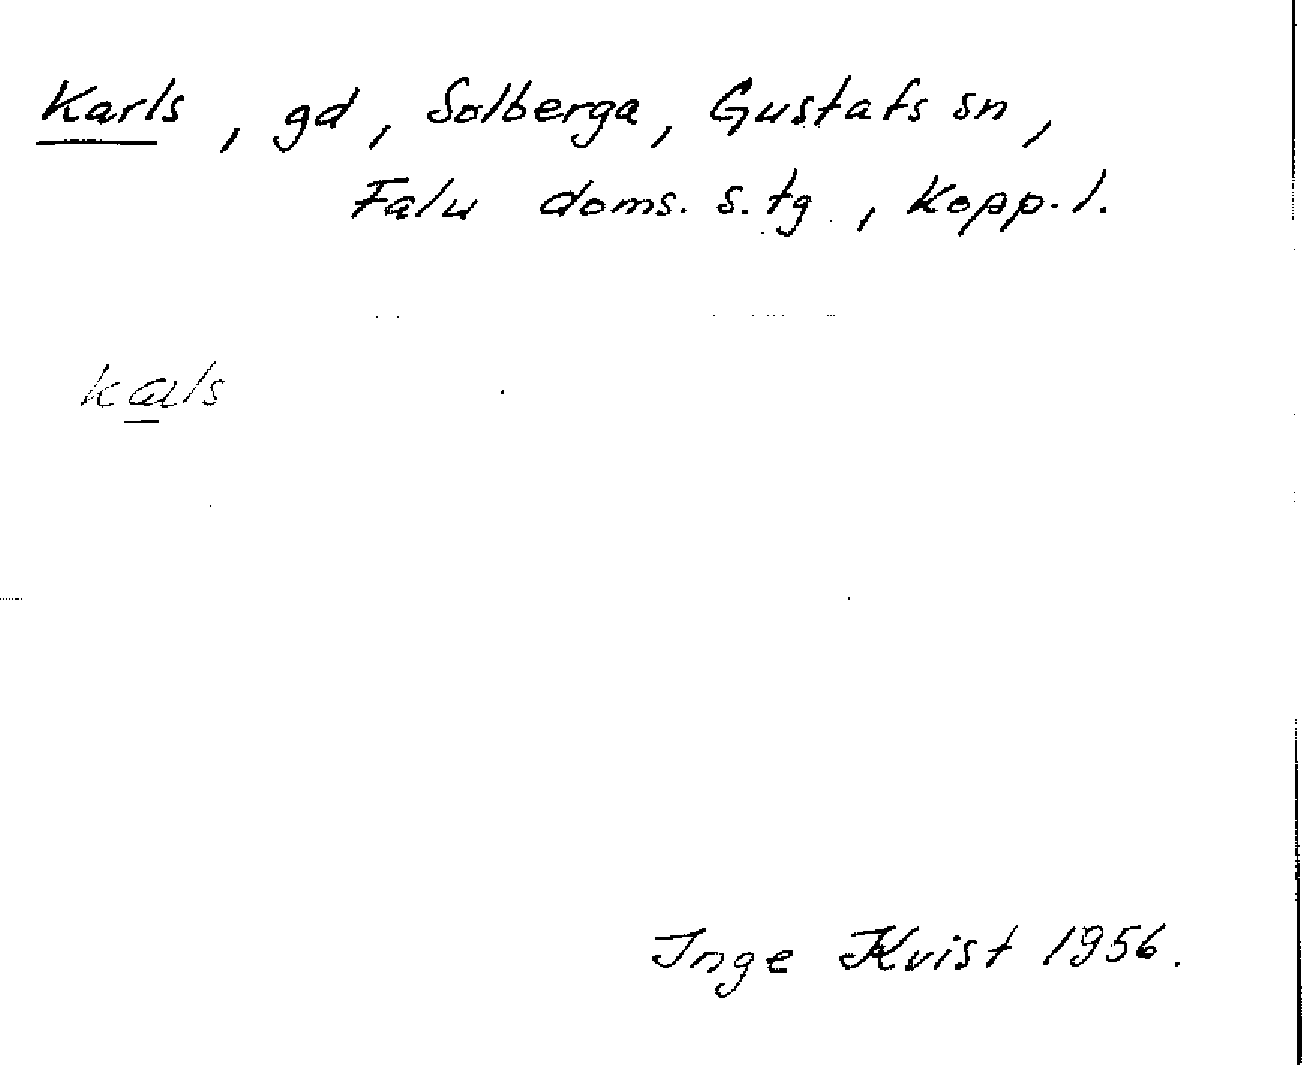 Karls, gd, Solberga, Gustafs sn,
Falu doms. s. tg, Kopp. l.
kals
Inge Kvist 1956.